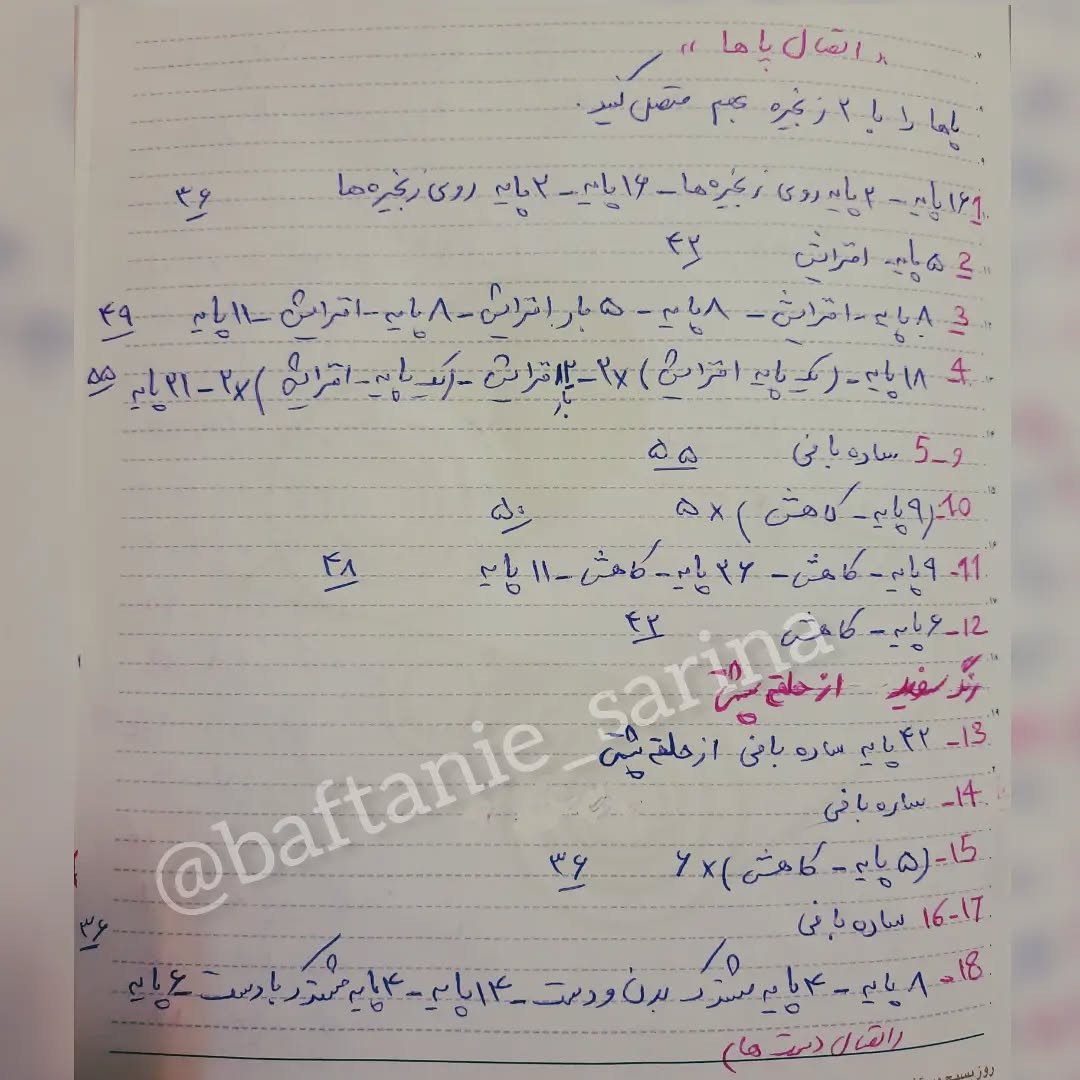 « اتصال پاها »
پاها را با ۲ زنجیره بهم متصل کنید.
1 ۱۶ پایه - ۲ پایه روی زنجیره‌ها - ۱۶ پایه - ۲ پایه روی زنجیره‌ها ۳۶
2 ۵ پایه - افزایش ۴۲
3 ۸ پایه - افزایش - ۸ پایه - ۵ بار افزایش - ۸ پایه - افزایش - ۱۱ پایه ۴۹
4 ۱۸ پایه - (یک پایه افزایش) ۲x - افزایش - (یک پایه - افزایش) ۲x - ۲۱ پایه ۵۵
5-و ساده بافی ۵۵
10- (۹ پایه - کاهش) ۵x ۵۰
11- ۹ پایه - کاهش - ۲۶ پایه - کاهش - ۱۱ پایه ۴۸
12- ۶ پایه - کاهش ۴۲
رنگ سفید از حلقه پشتی
13- ۴۲ پایه ساده بافی از حلقه پشتی
14- ساده بافی
15- (۵ پایه - کاهش) ۶x ۳۶
16-17 ساده بافی ۳۶
18- ۸ پایه - ۴ پایه مشترک بدن و دست - ۱۴ پایه - ۴ پایه مشترک با دست ۶ پایه
(اتصال دست ها)
@baftanie_sarina